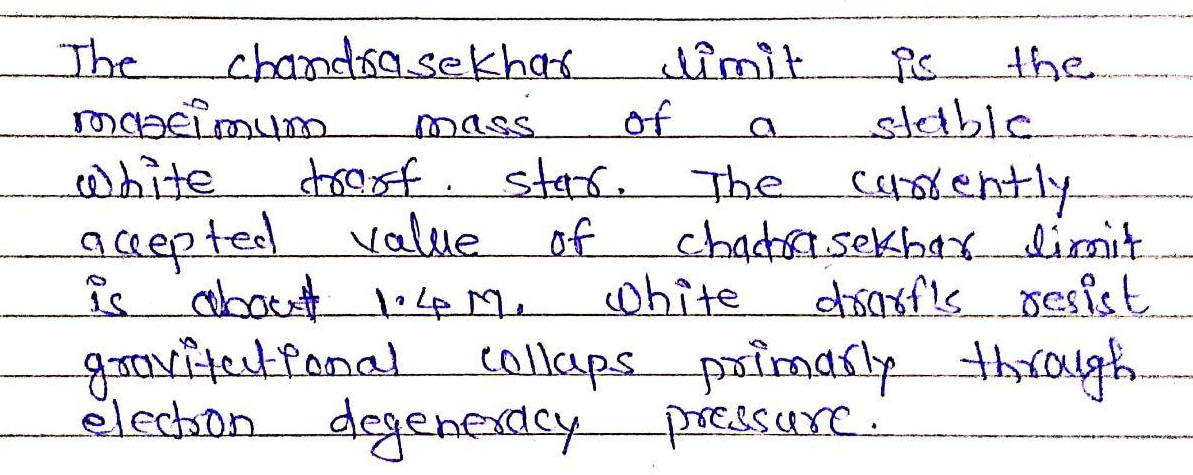 The chandrasekhar limit is the
maximum mass of a stable
white drarf. star. The currently
accepted value of chadrasekhar limit
is about 1.4 M. white drarfls resist
gravitational collaps primarly through
electron degeneracy pressure.